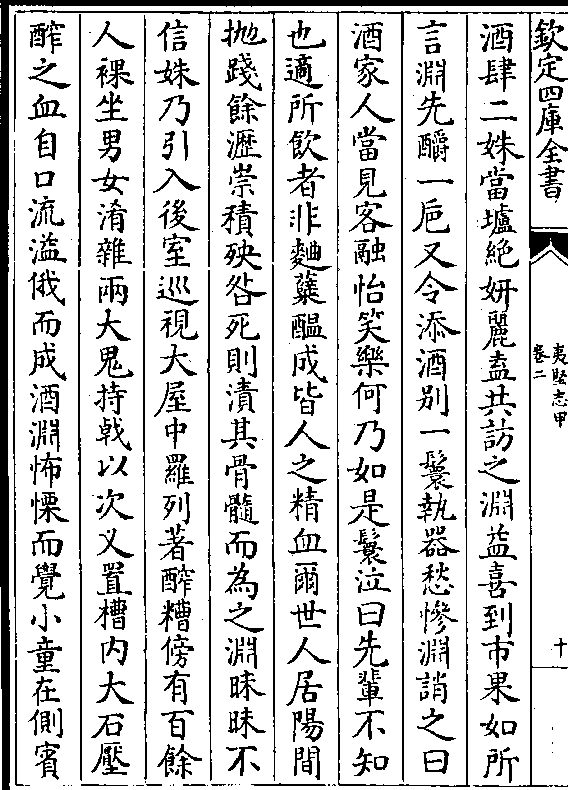 欽定四庫全書
夷堅志甲
卷二
十
酒肆二姝當壚絶妍麗盍共訪之淵益喜到市果如所
言淵先酹一巵又令添酒别一鬟執器愁慘淵誚之曰
酒家人當見客融怡笑樂何乃如是鬟泣曰先輩不知
也適所飲者非麯糵醖成皆人之精血爾世人居陽間
抛踐餘瀝崇積殃咎死則漬其骨髓而為之淵昧昧不
信姝乃引入後室巡視大屋中羅列著醡糟傍有百餘
人裸坐男女淆雜兩大鬼持戟以次义置槽内大石壓
醡之血自口流溢俄而成酒淵怖慄而覺小童在側賓